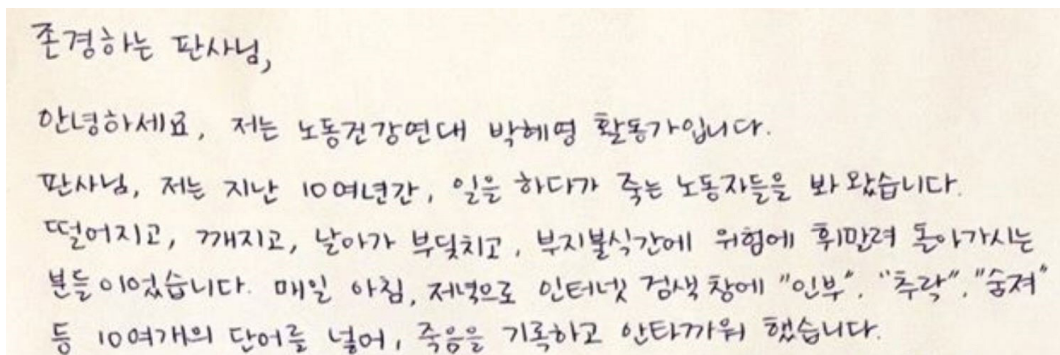 존경하는 판사님,
안녕하세요, 저는 노동건강연대 박혜영 활동가입니다.
판사님, 저는 지난 10여년간, 일을 하다가 죽는 노동자들을 봐 왔습니다.
떨어지고, 깨지고, 날아가 부딪치고, 부지불식간에 위험에 휘말려 돌아가시는
분들이었습니다. 매일 아침, 저녁으로 인터넷 검색창에 "인부", "추락", "숨져"
등 10여개의 단어를 넣어, 죽음을 기록하고 안타까워 했습니다.